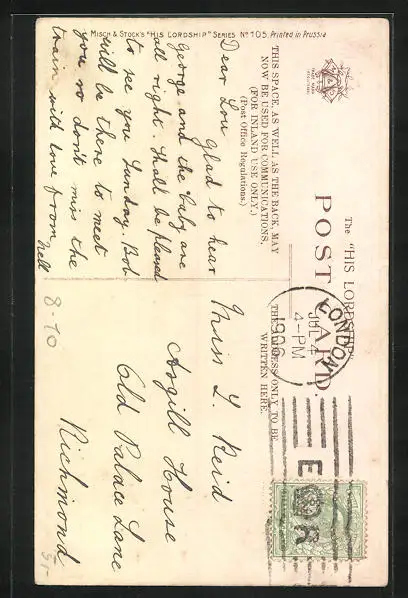 MISCH & STOCK'S "HIS LORDSHIP" SERIES No 105. Printed in Prussia
The "HIS LORDSHIP"
POST CARD.
THIS SPACE, AS WELL AS THE BACK, MAY
NOW BE USED FOR COMMUNICATIONS.
(FOR INLAND USE ONLY.)
(Post Office Regulations.)
THE ADDRESS ONLY TO BE
WRITTEN HERE.
LONDON
4-PM
JUL 4
1906
E R
Dear Lou Glad to hear
George and the baby are
all right. Shall be pleased
to see you Sunday. Bob
will be there to meet
you so don't miss the
train with love from
Nell
Miss L. Reid
Argill House
Old Palace Lane
Richmond
8-10